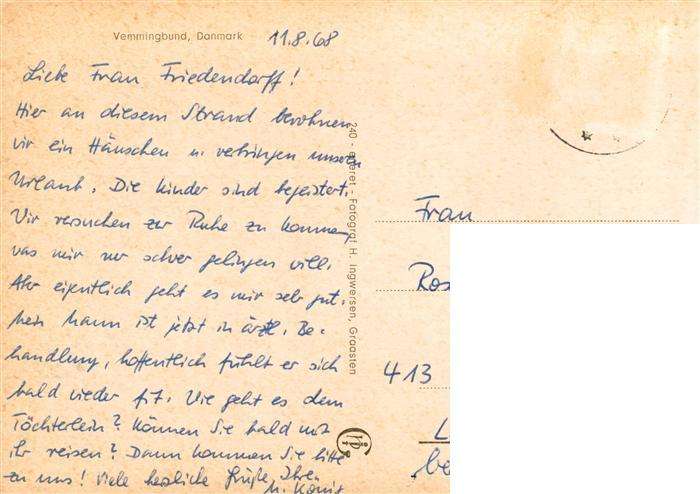 Vemmingbund, Danmark 11.8.68
Liebe Frau Friedendorff!
Hier an diesem Strand bewohnen
wir ein Häuschen u. verbringen unseren
Urlaub. Die Kinder sind begeistert.
Wir versuchen zur Ruhe zu kommen,
was mir nur schwer gelingen will.
Aber eigentlich geht es mir sehr gut.
Mein Mann ist jetzt in ärztl. Be-
handlung, hoffentlich fühlt er sich
bald wieder fit. Wie geht es dem
Töchterlein? Können Sie bald mit
ihr reisen? Dann kommen Sie bitte
zu uns! Viele herzliche Grüße, Ihre
M. König
240 - eneret - Fotograf H. Ingwersen, Graasten
Frau
Ros
413
L